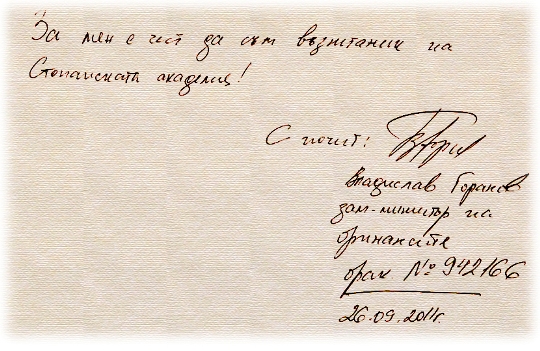 За мен е чест да съм възпитаник на
Стопанската академия!
С почит:
Владислав Горанов
зам-министър на
финансите
фак. № 942166
26.09.2011г.